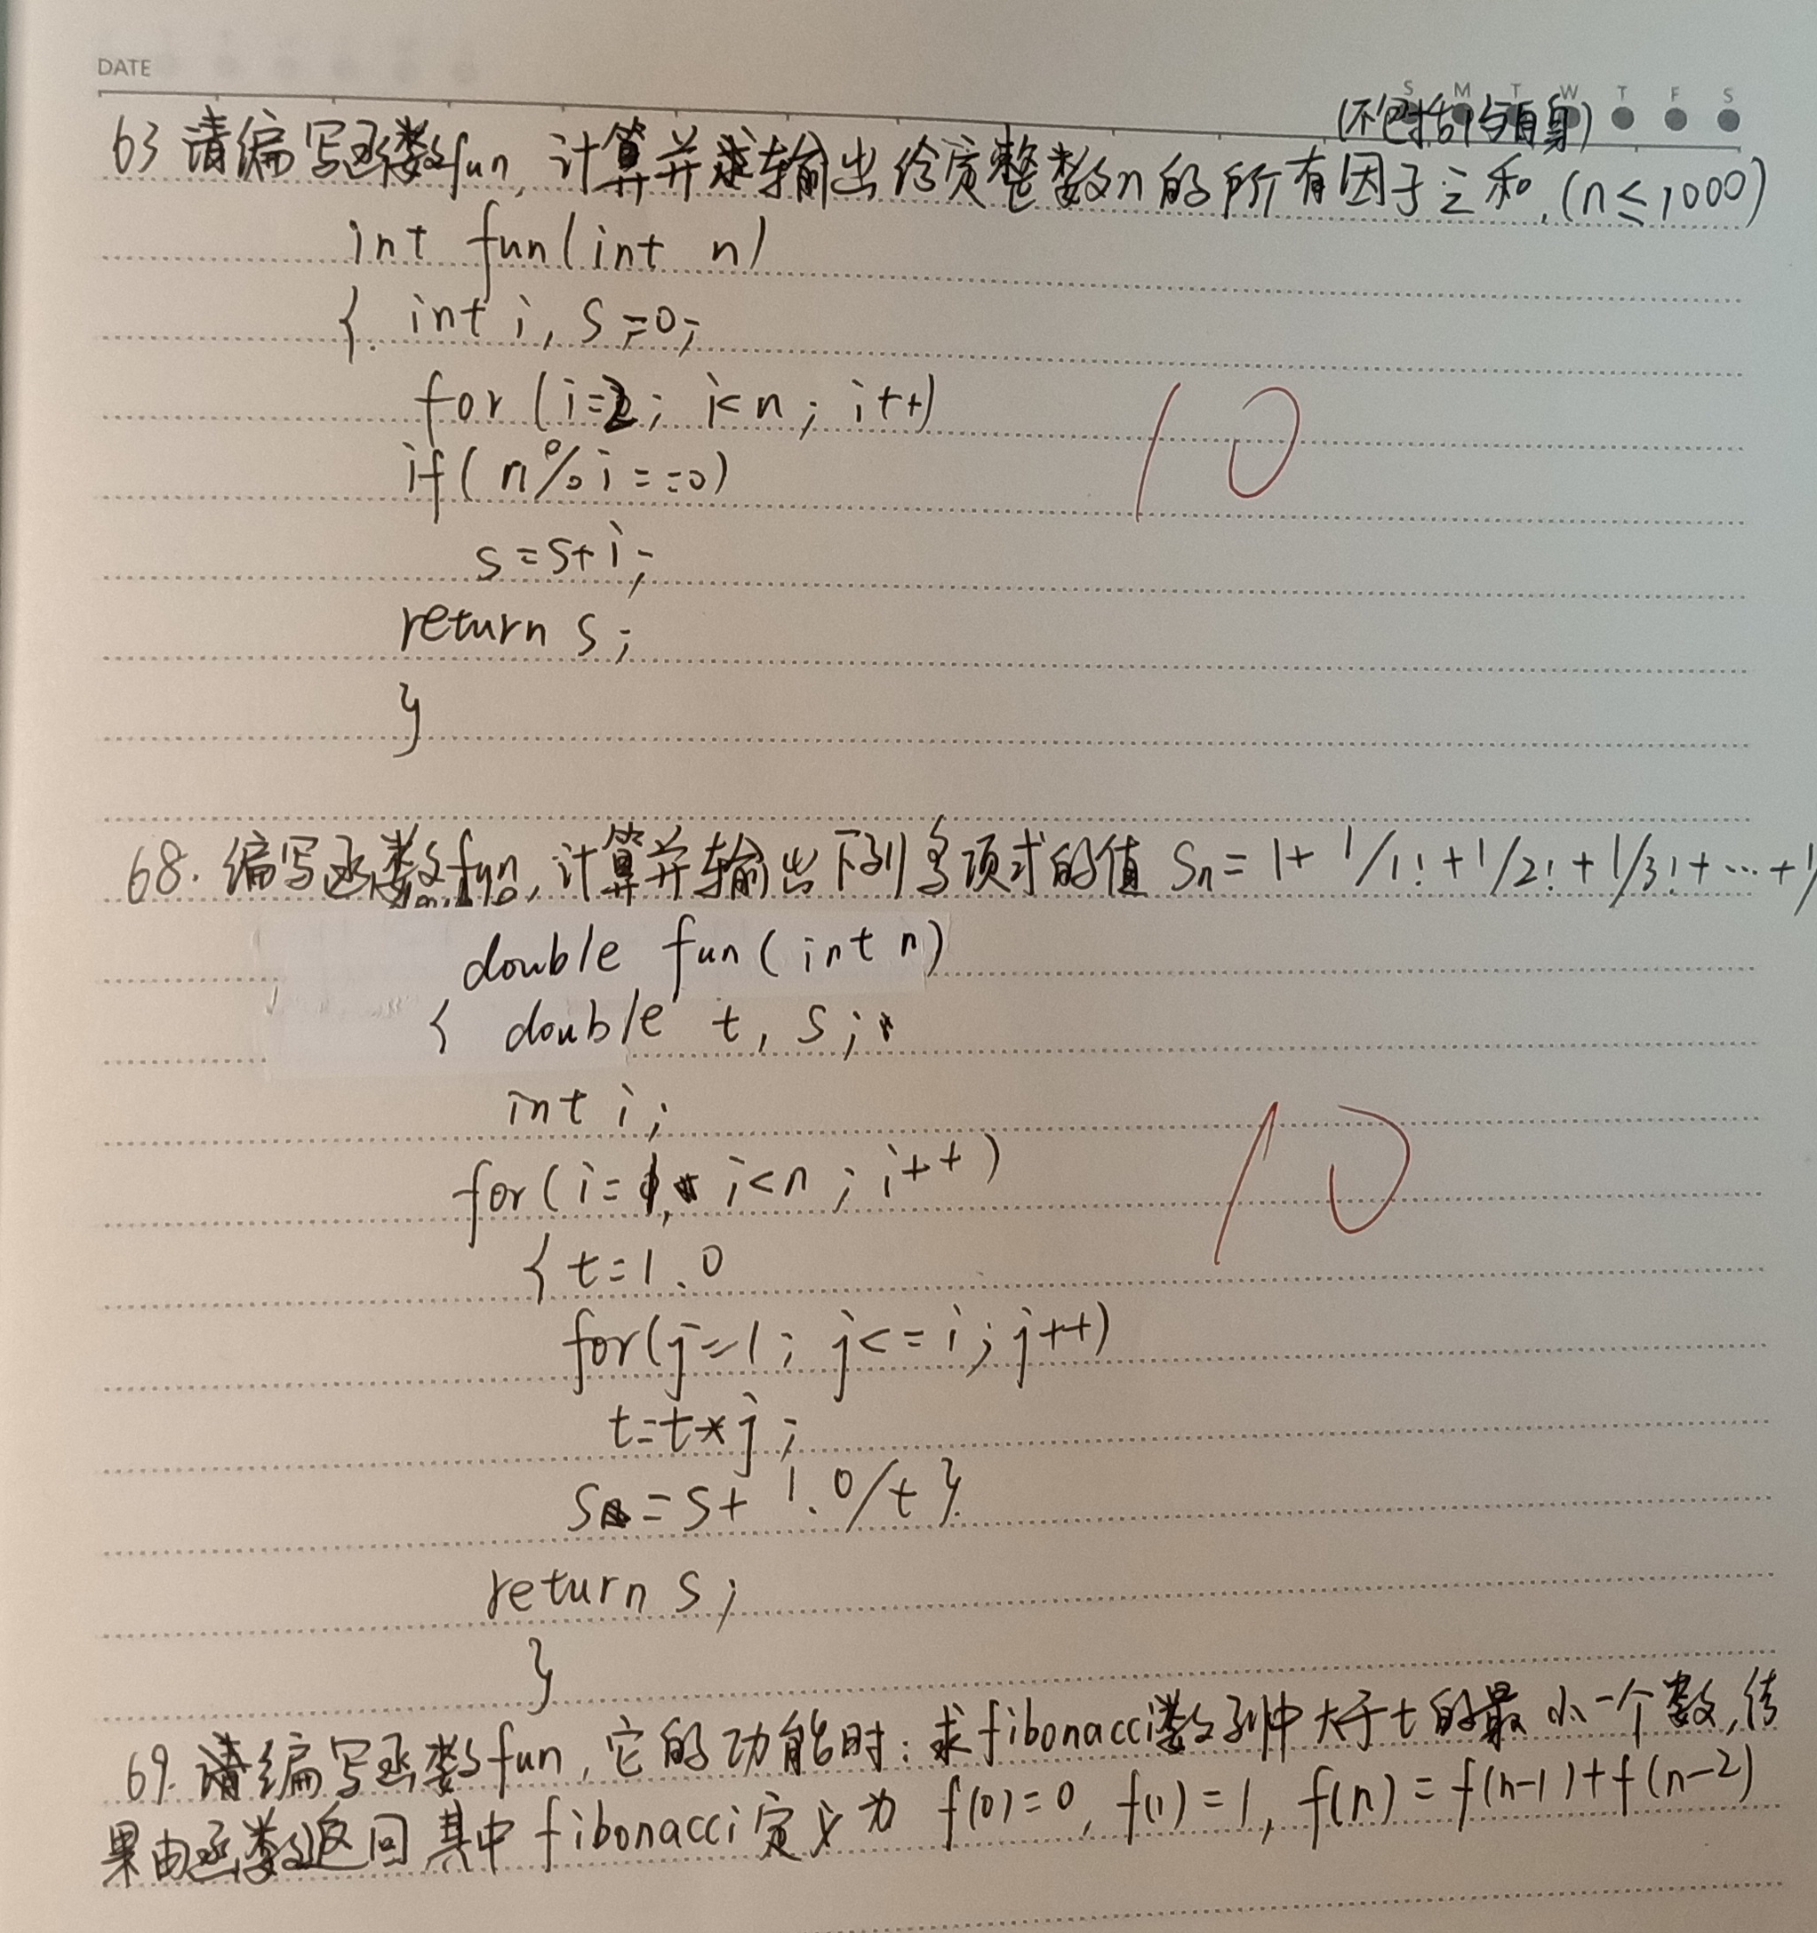 DATE
S M T W T F S
(不包括1与自身)
63 请编写函数fun, 计算并输出给定整数n的所有因子之和.(n≤1000)
int fun(int n)
{ int i, s=0;
for (i=2; i<n; i++)
if( n%i==0)
s=s+i;
return s;
}
10
68. 编写函数fun, 计算并输出下列多项式的值 Sn=1+1/1!+1/2!+1/3!+…+1/
double fun(int n)
{ double t, s;
int i;
for(i=1, i<n; i++)
{ t=1.0
for(j=1; j<=i; j++)
t=t*j;
s=s+1.0/t }
return s;
}
10
69. 请编写函数fun, 它的功能时:求fibonacci数列中大于t的最小一个数,结
果由函数返回 其中fibonacci定义为 f(0)=0, f(1)=1, f(n)=f(n-1)+f(n-2)